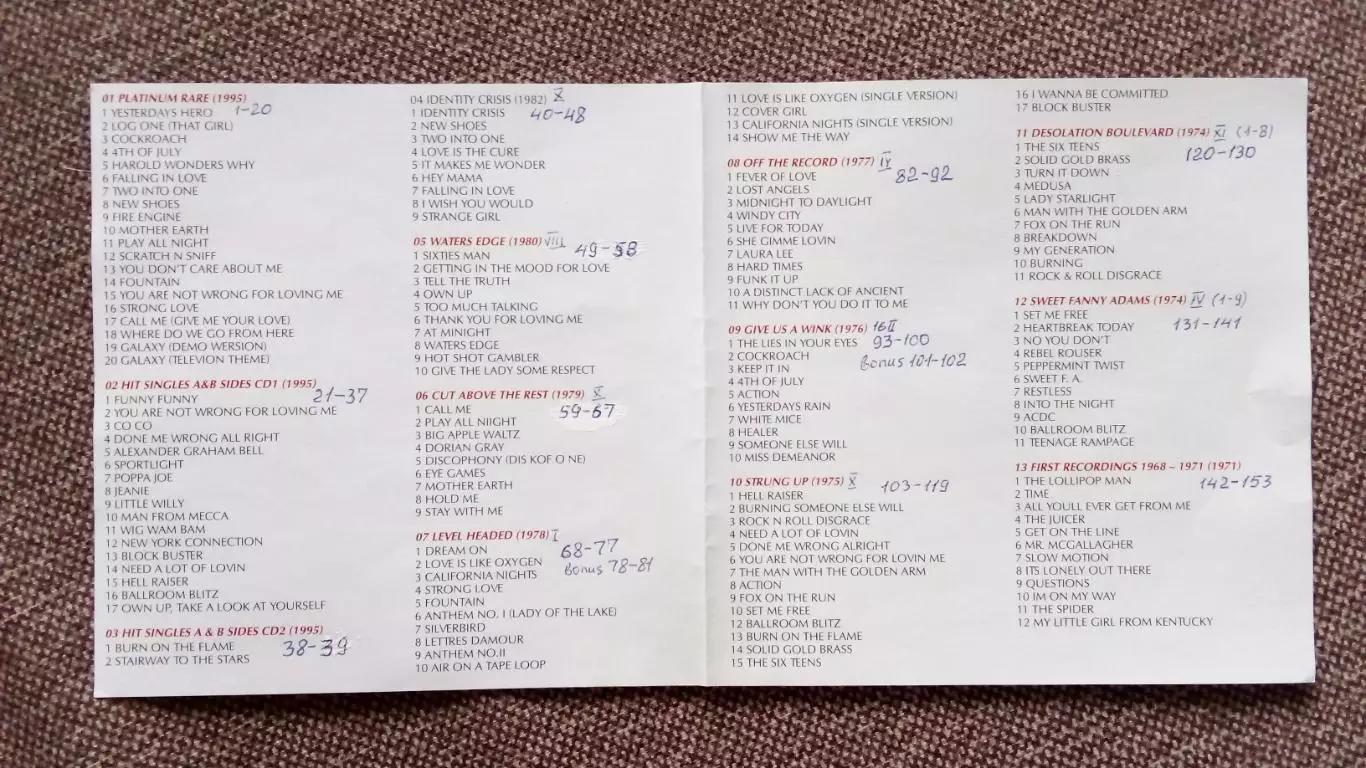 01 PLATINUM RARE (1995)
1 YESTERDAYS HERO 1-20
2 LOG ONE (THAT GIRL)
3 COCKROACH
4 4TH OF JULY
5 HAROLD WONDERS WHY
6 FALLING IN LOVE
7 TWO INTO ONE
8 NEW SHOES
9 FIRE ENGINE
10 MOTHER EARTH
11 PLAY ALL NIGHT
12 SCRATCH N SNIFF
13 YOU DON'T CARE ABOUT ME
14 FOUNTAIN
15 YOU ARE NOT WRONG FOR LOVING ME
16 STRONG LOVE
17 CALL ME (GIVE ME YOUR LOVE)
18 WHERE DO WE GO FROM HERE
19 GALAXY (DEMO VERSION)
20 GALAXY (TELEVION THEME)
02 HIT SINGLES A&B SIDES CD1 (1995)
1 FUNNY FUNNY 21-37
2 YOU ARE NOT WRONG FOR LOVING ME
3 CO CO
4 DONE ME WRONG ALL RIGHT
5 ALEXANDER GRAHAM BELL
6 SPORTLIGHT
7 POPPA JOE
8 JEANIE
9 LITTLE WILLY
10 MAN FROM MECCA
11 WIG WAM BAM
12 NEW YORK CONNECTION
13 BLOCK BUSTER
14 NEED A LOT OF LOVIN
15 HELL RAISER
16 BALLROOM BLITZ
17 OWN UP, TAKE A LOOK AT YOURSELF
03 HIT SINGLES A & B SIDES CD2 (1995)
1 BURN ON THE FLAME 38-39
2 STAIRWAY TO THE STARS
04 IDENTITY CRISIS (1982) X
1 IDENTITY CRISIS 40-48
2 NEW SHOES
3 TWO INTO ONE
4 LOVE IS THE CURE
5 IT MAKES ME WONDER
6 HEY MAMA
7 FALLING IN LOVE
8 I WISH YOU WOULD
9 STRANGE GIRL
05 WATERS EDGE (1980) VIII
1 SIXTIES MAN 49-58
2 GETTING IN THE MOOD FOR LOVE
3 TELL THE TRUTH
4 OWN UP
5 TOO MUCH TALKING
6 THANK YOU FOR LOVING ME
7 AT MINIGHT
8 WATERS EDGE
9 HOT SHOT GAMBLER
10 GIVE THE LADY SOME RESPECT
06 CUT ABOVE THE REST (1979) X
1 CALL ME 59-67
2 PLAY ALL NIIGHT
3 BIG APPLE WALTZ
4 DORIAN GRAY
5 DISCOPHONY (DIS KOF O NE)
6 EYE GAMES
7 MOTHER EARTH
8 HOLD ME
9 STAY WITH ME
07 LEVEL HEADED (1978) I
1 DREAM ON 68-77
2 LOVE IS LIKE OXYGEN bonus 78-81
3 CALIFORNIA NIGHTS
4 STRONG LOVE
5 FOUNTAIN
6 ANTHEM NO. I (LADY OF THE LAKE)
7 SILVERBIRD
8 LETTRES DAMOUR
9 ANTHEM NO.II
10 AIR ON A TAPE LOOP
11 LOVE IS LIKE OXYGEN (SINGLE VERSION)
12 COVER GIRL
13 CALIFORNIA NIGHTS (SINGLE VERSION)
14 SHOW ME THE WAY
08 OFF THE RECORD (1977) IV
1 FEVER OF LOVE 82-92
2 LOST ANGELS
3 MIDNIGHT TO DAYLIGHT
4 WINDY CITY
5 LIVE FOR TODAY
6 SHE GIMME LOVIN
7 LAURA LEE
8 HARD TIMES
9 FUNK IT UP
10 A DISTINCT LACK OF ANCIENT
11 WHY DON'T YOU DO IT TO ME
09 GIVE US A WINK (1976) 16 II
1 THE LIES IN YOUR EYES 93-100
2 COCKROACH bonus 101-102
3 KEEP IT IN
4 4TH OF JULY
5 ACTION
6 YESTERDAYS RAIN
7 WHITE MICE
8 HEALER
9 SOMEONE ELSE WILL
10 MISS DEMEANOR
10 STRUNG UP (1975) X 103-119
1 HELL RAISER
2 BURNING SOMEONE ELSE WILL
3 ROCK N ROLL DISGRACE
4 NEED A LOT OF LOVIN
5 DONE ME WRONG ALRIGHT
6 YOU ARE NOT WRONG FOR LOVIN ME
7 THE MAN WITH THE GOLDEN ARM
8 ACTION
9 FOX ON THE RUN
10 SET ME FREE
12 BALLROOM BLITZ
13 BURN ON THE FLAME
14 SOLID GOLD BRASS
15 THE SIX TEENS
16 I WANNA BE COMMITTED
17 BLOCK BUSTER
11 DESOLATION BOULEVARD (1974) XI (1-8)
1 THE SIX TEENS 120-130
2 SOLID GOLD BRASS
3 TURN IT DOWN
4 MEDUSA
5 LADY STARLIGHT
6 MAN WITH THE GOLDEN ARM
7 FOX ON THE RUN
8 BREAKDOWN
9 MY GENERATION
10 BURNING
11 ROCK & ROLL DISGRACE
12 SWEET FANNY ADAMS (1974) IV (1-9)
1 SET ME FREE
2 HEARTBREAK TODAY 131-141
3 NO YOU DON'T
4 REBEL ROUSER
5 PEPPERMINT TWIST
6 SWEET F. A.
7 RESTLESS
8 INTO THE NIGHT
9 ACDC
10 BALLROOM BLITZ
11 TEENAGE RAMPAGE
13 FIRST RECORDINGS 1968 – 1971 (1971)
1 THE LOLLIPOP MAN 142-153
2 TIME
3 ALL YOULL EVER GET FROM ME
4 THE JUICER
5 GET ON THE LINE
6 MR. MCGALLAGHER
7 SLOW MOTION
8 ITS LONELY OUT THERE
9 QUESTIONS
10 IM ON MY WAY
11 THE SPIDER
12 MY LITTLE GIRL FROM KENTUCKY